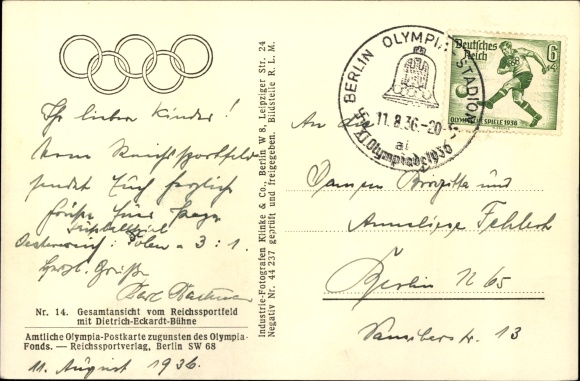 Ihr lieben Kinder!
Vom Reichssportfeld
sendet Euch herzlich
Grüße Euer
Fußballspiel
Oesterreich : Polen = 3 : 1.
Herzl. Grüße
Karl
Nr. 14. Gesamtansicht vom Reichssportfeld
mit Dietrich-Eckardt-Bühne
Amtliche Olympia-Postkarte zugunsten des Olympia-
Fonds. — Reichssportverlag, Berlin SW 68
11. August 1936.
Industrie-Fotografen Klinke & Co., Berlin W 8, Leipziger Str. 24
Negativ Nr. 44 237 geprüft und freigegeben. Bildstelle R. L. M.
BERLIN OLYMPIA-STADION
11.8.36.-20
XI. Olympiade 1936
Deutsches
Reich
6
+4
OLYMPISCHE SPIELE 1936
An die
Damen Brigitta und
Anneliese
Berlin N 65
13